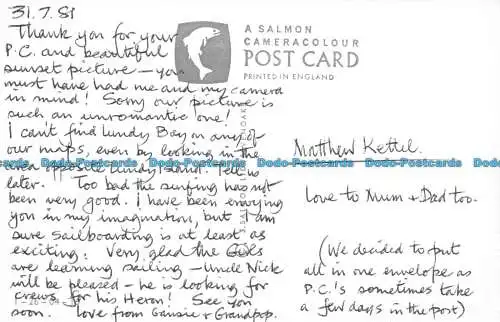 31.7.81
Thank you for your
P.C. and beautiful
sunset picture – you
must have had me and my camera
in mind! Sorry our picture is
such an unromantic one!
I can't find Lundy Bay on any of
our maps, even by looking in the
area opposite Lundy Island. Tell us
later. Too bad the surfing has not
been very good. I have been envying
you in my imagination, but I am
sure sailboarding is at least as
exciting. Very glad the Girls
are learning sailing – Uncle Nick
will be pleased – he is looking for
crews for his Heron! See you
soon. Love from Gansie + Grandpop.
A SALMON
CAMERACOLOUR
POST CARD
PRINTED IN ENGLAND
Matthew Kettel.
Love to Mum + Dad too.
(We decided to put
all in one envelope as
P.C.'s sometimes take
a few days in the post)
Dodo-Postcards Dodo-Postcards Dodo-Postcards Dodo-Postcards Dodo-Postcards